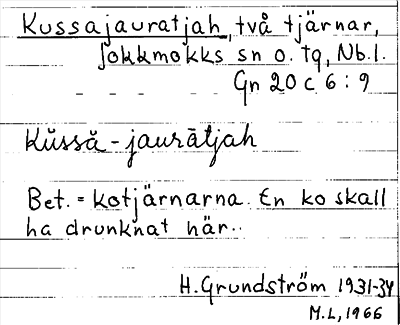 Kussajauratjah, två tjärnar,
Jokkmokks sn o. tg, Nb.l.
Gn 20 C 6 : 9
Kŭssă - jaurātjah
Bet. = kotjärnarna. En ko skall
ha drunknat här..
H. Grundström 1931-34
M.L, 1966